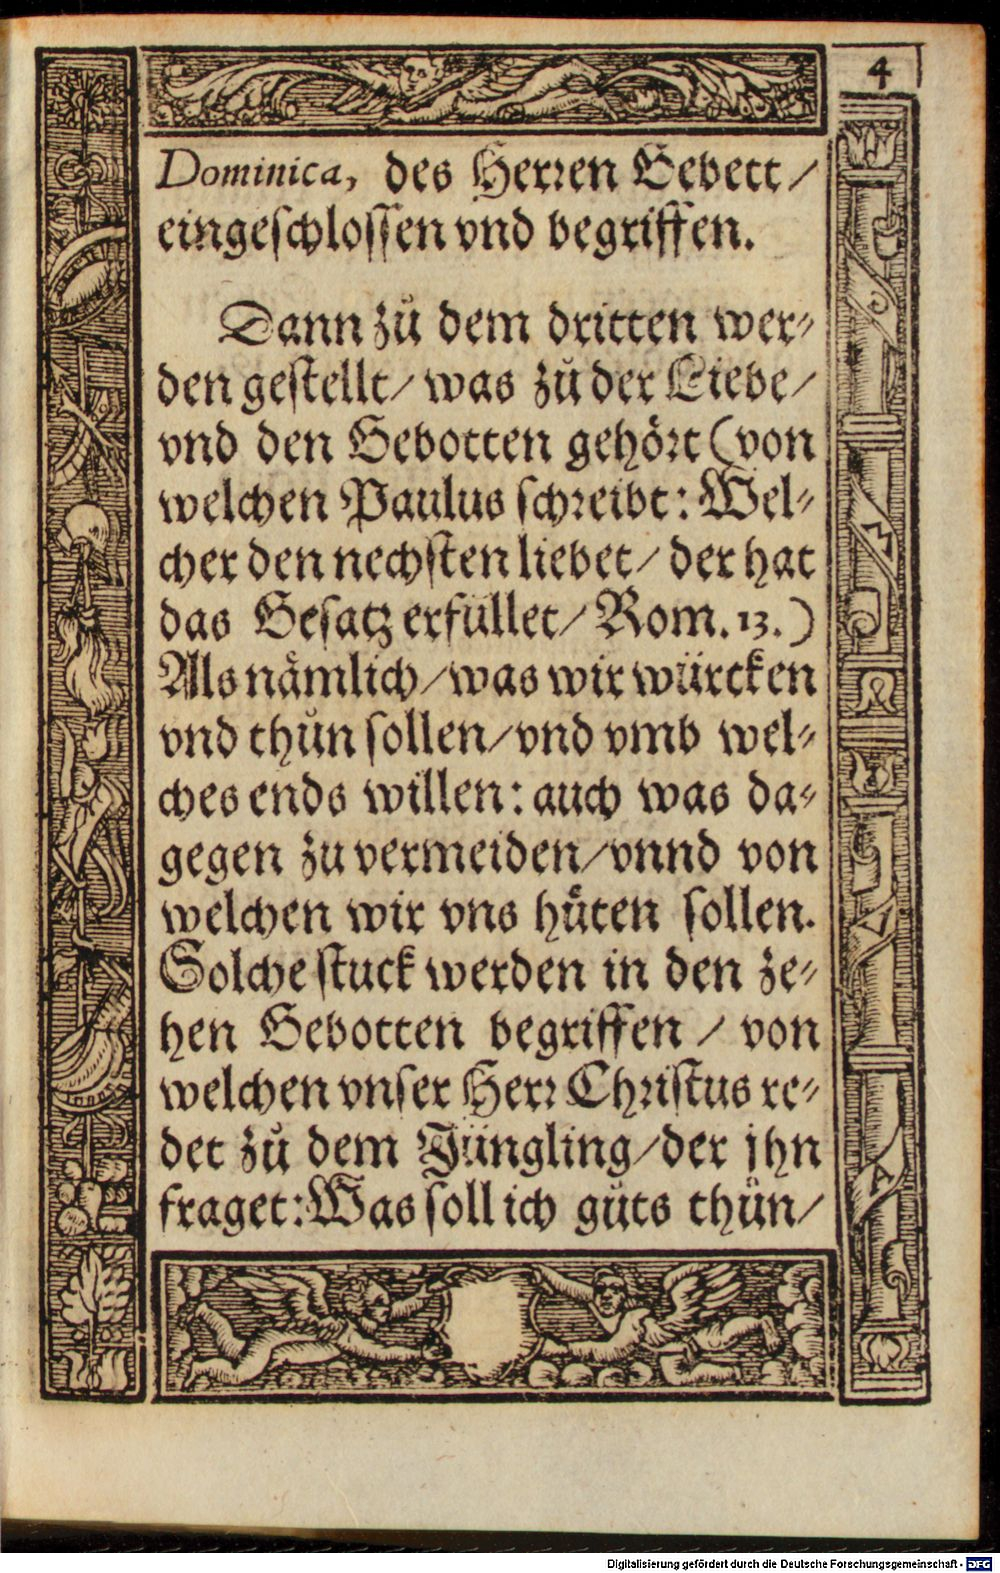 4
Dominica, des Herren Gebett /
eingeschlossen vnd begriffen.
Dann zů dem dritten wer-
den gestellt / was zů der Liebe /
vnd den Gebotten gehört (von
welchen Paulus schreibt: Wel-
cher den nechsten liebet / der hat
das Gesatz erfüllet / Rom. 13.)
Als nämlich / was wir würcken
vnd thůn sollen / vnd vmb wel-
ches ends willen: auch was da-
gegen zu vermeiden / vnnd von
welchen wir vns hüten sollen.
Solche stuck werden in den ze-
hen Gebotten begriffen / von
welchen vnser Herr Christus re-
det zů dem Jüngling / der jhn
fraget: Was soll ich gůts thůn /
A
Digitalisierung gefördert durch die Deutsche Forschungsgemeinschaft - DFG